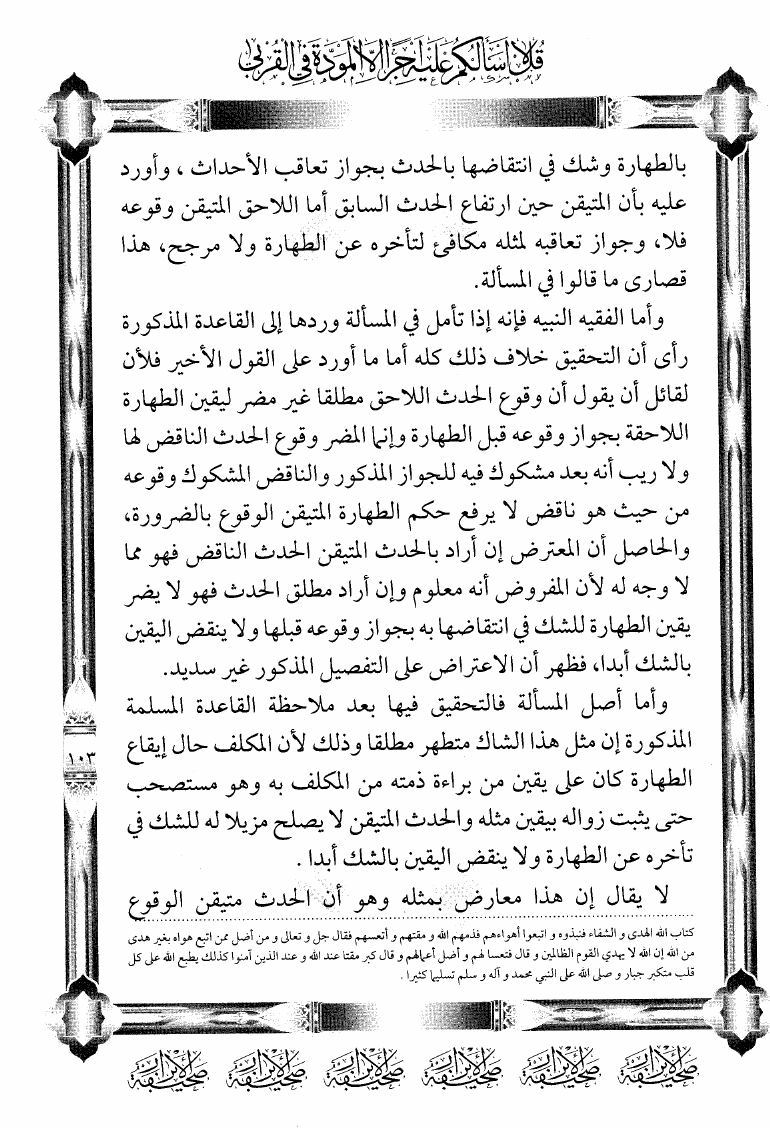 قل لا أسألكم عليه أجرا إلا المودة في القربى
بالطهارة وشك في انتقاضها بالحدث بجواز تعاقب الأحداث ، وأورد
عليه بأن المتيقن حين ارتفاع الحدث السابق أما اللاحق المتيقن وقوعه
فلا، وجواز تعاقبه لمثله مكافئ لتأخره عن الطهارة ولا مرجح، هذا
قصارى ما قالوا في المسألة.
وأما الفقيه النبيه فإنه إذا تأمل في المسألة وردها إلى القاعدة المذكورة
رأى أن التحقيق خلاف ذلك كله أما ما أورد على القول الأخير فلأن
لقائل أن يقول أن وقوع الحدث اللاحق مطلقا غير مضر ليقين الطهارة
اللاحقة بجواز وقوعه قبل الطهارة وإنما المضر وقوع الحدث الناقض لها
ولا ريب أنه بعد مشكوك فيه للجواز المذكور والناقض المشكوك وقوعه
من حيث هو ناقض لا يرفع حكم الطهارة المتيقن الوقوع بالضرورة،
والحاصل أن المعترض إن أراد بالحدث المتيقن الحدث الناقض فهو مما
لا وجه له لأن المفروض أنه معلوم وإن أراد مطلق الحدث فهو لا يضر
يقين الطهارة للشك في انتقاضها به بجواز وقوعه قبلها ولا ينقض اليقين
بالشك أبدا، فظهر أن الاعتراض على التفصيل المذكور غير سديد.
وأما أصل المسألة فالتحقيق فيها بعد ملاحظة القاعدة المسلمة
المذكورة إن مثل هذا الشاك متطهر مطلقا وذلك لأن المكلف حال إيقاع
الطهارة كان على يقين من براءة ذمته من المكلف به وهو مستصحب
حتى يثبت زواله بيقين مثله والحدث المتيقن لا يصلح مزيلا له للشك في
تأخره عن الطهارة ولا ينقض اليقين بالشك أبدا .
لا يقال إن هذا معارض بمثله وهو أن الحدث متيقن الوقوع
كتاب الله الهدى و الشفاء فنبذوه و اتبعوا أهواءهم فذمهم الله و مقتهم و أتعسهم فقال جل و تعالى و من أضل ممن اتبع هواه بغير هدى
من الله إن الله لا يهدي القوم الظالمين و قال فتعسا لهم و أضل أعمالهم و قال كبر مقتا عند الله و عند الذين آمنوا كذلك يطبع الله على كل
قلب متكبر جبار و صلى الله على النبي محمد و آله و سلم تسليما كثيرا .
١٠٣
صحيفة الأبرار صحيفة الأبرار صحيفة الأبرار صحيفة الأبرار صحيفة الأبرار صحيفة الأبرار